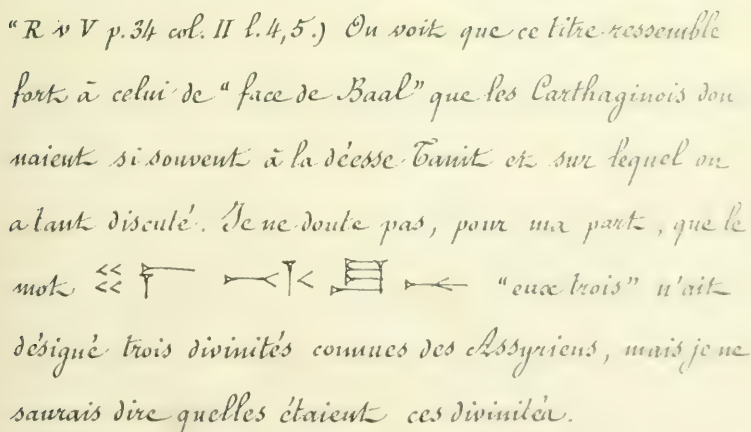 "R iv V p. 34 col. II l. 4, 5.) On voit que ce titre ressemble
fort à celui de "face de Baal" que les Carthaginois don
naient si souvent à la déesse Tanit et sur lequel on
a tant discuté. Je ne doute pas, pour ma part, que le
mot "eux trois" n'ait
désigné trois divinités connues des Assyriens, mais je ne
saurais dire quelles étaient ces divinités.